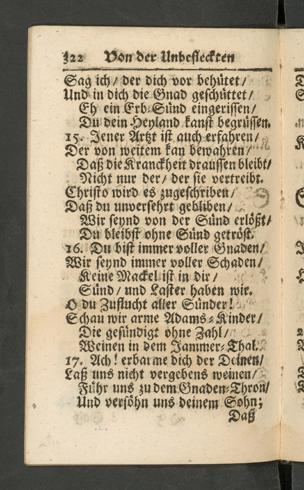 322 Von der Unbefleckten
Sag ich/ der dich vor behütet/
Und in dich die Gnad geschüttet/
Eh ein Erb-Sünd eingerissen/
Du dein Heyland kanst begrüssen.
15. Jener Artzt ist auch erfahren/
Der von weitem kan bewahren/
Daß die Kranckheit draussen bleibt/
Nicht nur der/ der sie vertreibt.
Christo wird es zugeschriben/
Daß du unversehrt gebliben/
Wir seynd von der Sünd erlößt/
Du bleibst ohne Sünd getröst.
16. Du bist immer voller Gnaden/
Wir seynd immer voller Schaden/
Keine Mackel ist in dir/
Sünd/ und Laster haben wir.
O du Zuflucht aller Sünder!
Schau wir arme Adams-Kinder/
Die gesündigt ohne Zahl/
Weinen in dem Jammer-Thal.
17. Ach! erbarme dich der Deinen/
Laß uns nicht vergebens weinen/
Führ uns zu dem Gnaden-Thron/
Und versöhn uns deinem Sohn;
Daß